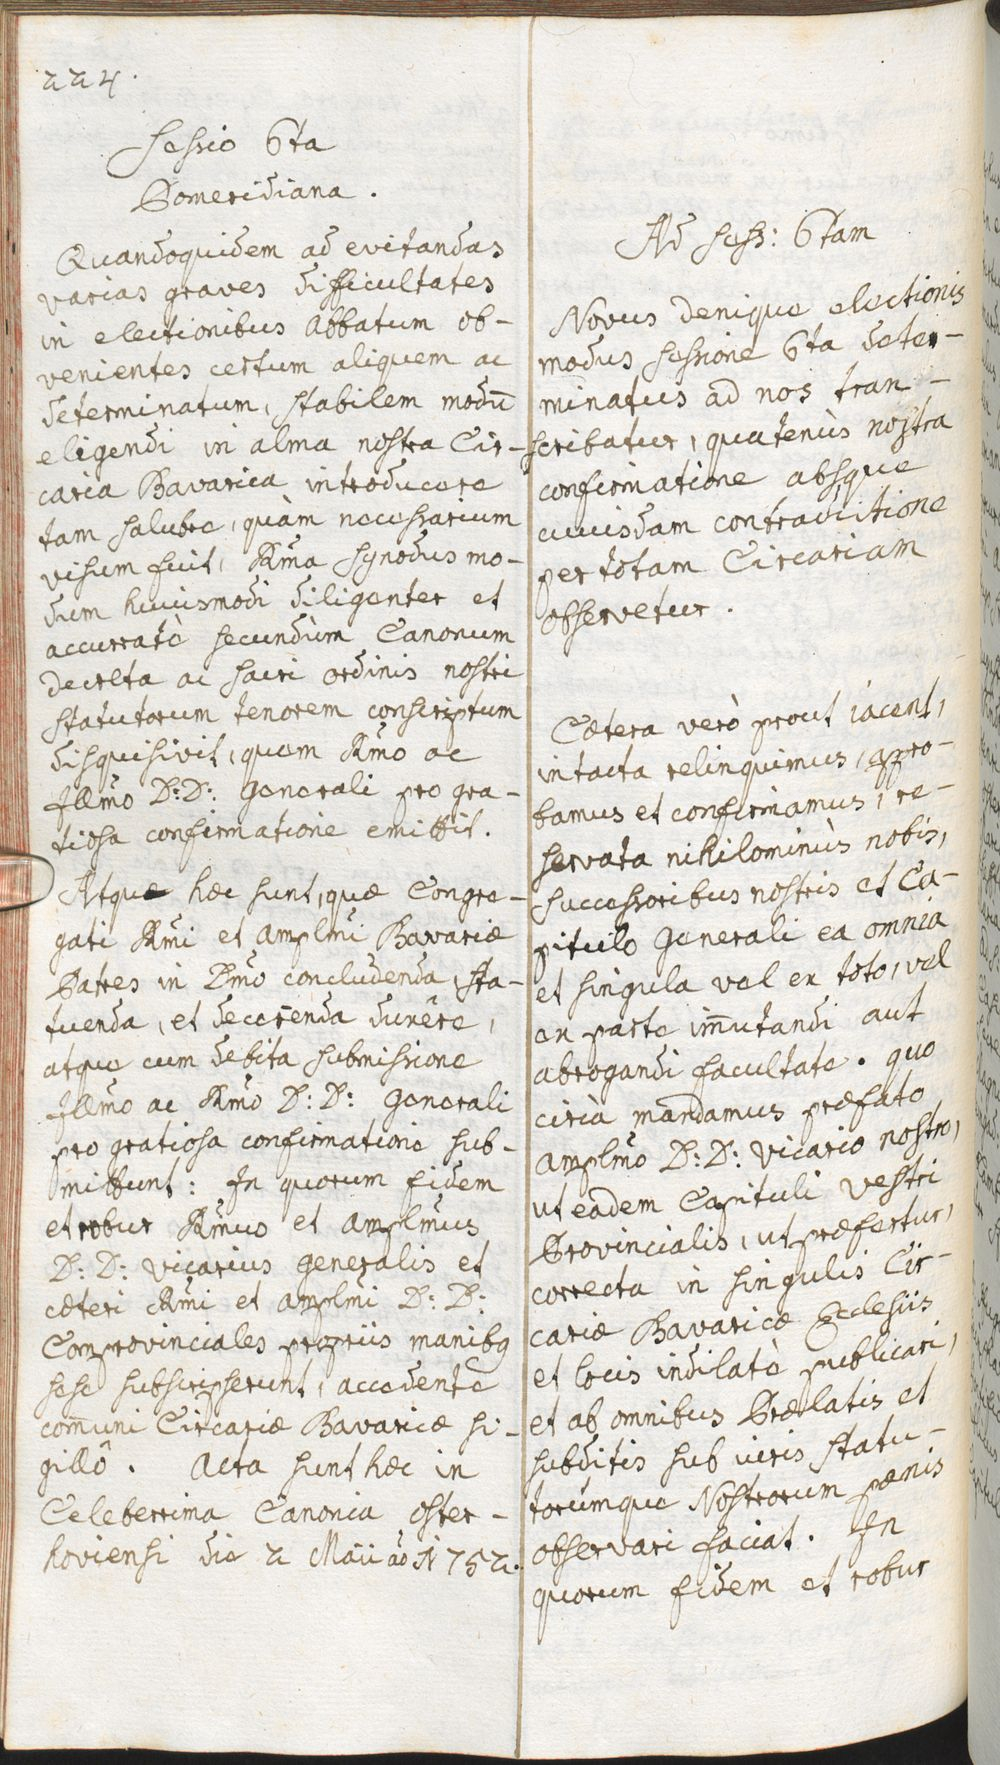 224.
Sessio 6ta
Pomeridiana.
Quandoquidem ad evitandas
varias graves difficultates
in electionibus Abbatum ob-
venientes certum aliquem ac
determinatum, stabilem modū
eligendi in alma nostra Cir-
caria Bavarica introducere
tam salubre, quàm necessarium
visum fuit, Rm̃a Synodus mo-
dum huiusmodi diligenter et
accurratè secundùm Canonum
decreta ac sacri ordinis nostri
statutorum tenorem conscriptum
disquisivit, quem Rm̃o ac
Illm̃o D: D: Generali pro gra-
tiosa confirmatione emittit.
Atque hæc sunt, quæ Congre-
gati Rm̃i et Amplm̃i Bavariæ
Patres in Dn̄o concludenda, sta-
tuenda, et decerenda duxêre,
atque cum debita submissione
Illm̃o ac Rm̃o D: D: Generali
pro gratiosa confirmatione sub-
mittunt: In quorum fidem
et robur Rm̃us et Amplm̃us
D: D: Vicarius Generalis et
cæteri Rm̃i et Amplm̃i D: D:
Comprovinciales propriis manibq
sese subscripserunt, accedente
com̄uni Circariæ Bavaricæ si-
gillô. Acta sunt hæc in
Celeberrima Canonia Oster-
hoviensi die 2 Maii ad̄ 1752.
Ad Sess: 6tam
Novus denique electionis
modus sessione 6ta deter-
minatus ad nos tran-
scribatur, quatenùs nostra
confirmatione absque
cuiusdam contradictione
per totam Circariam
observetur.
Cætera verò prout iacent,
intacta relinquimus, appro-
bamus et confirmamus, re-
servata nihilominùs nobis,
successoribus nostris et Ca-
pitulo Generali ea omnia
et singula vel ex toto, vel
ex parte im̄utandi aut
abrogandi facultate. quo
circà mandamus præfato
Amplm̃o D: D: Vicario nostro,
ut eadem Capituli vestri
Provincialis, ut præfertur,
correcta in singulis Cir-
cariæ Bavaricæ Ecclesiis
et locis indilatè publicari,
et ab omnibus Prælatis et
subditis sub iuris statu-
torúmque Nostrorum pœnis
observari faciat. In
quorum fidem et robur